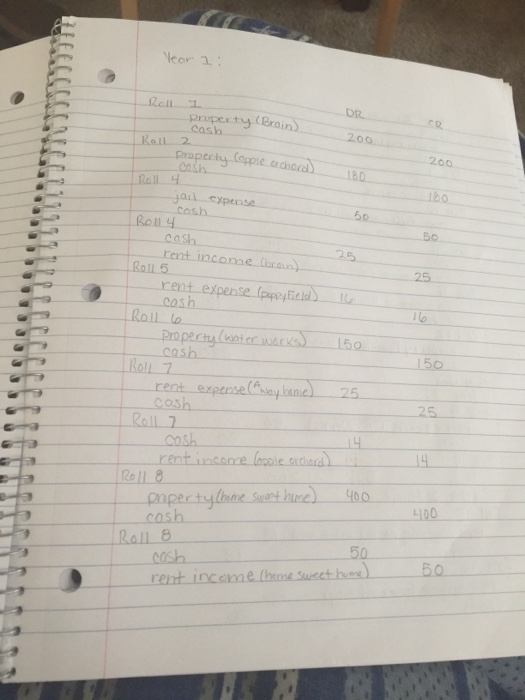 Year 1:
DR CR
Roll 1
property (Brain) 200
cash 200
Roll 2
property (apple orchard) 180
cash 180
Roll 4
jail expense 50
cash 50
Roll 4
cash 25
rent income (brain) 25
Roll 5
rent expense (poppyfield) 16
cash 16
Roll 6
property (water works) 150
cash 150
Roll 7
rent expense (Away home) 25
cash 25
Roll 7
cash 14
rent income (apple orchard) 14
Roll 8
property (home sweet home) 400
cash 400
Roll 8
cash 50
rent income (home sweet home) 50